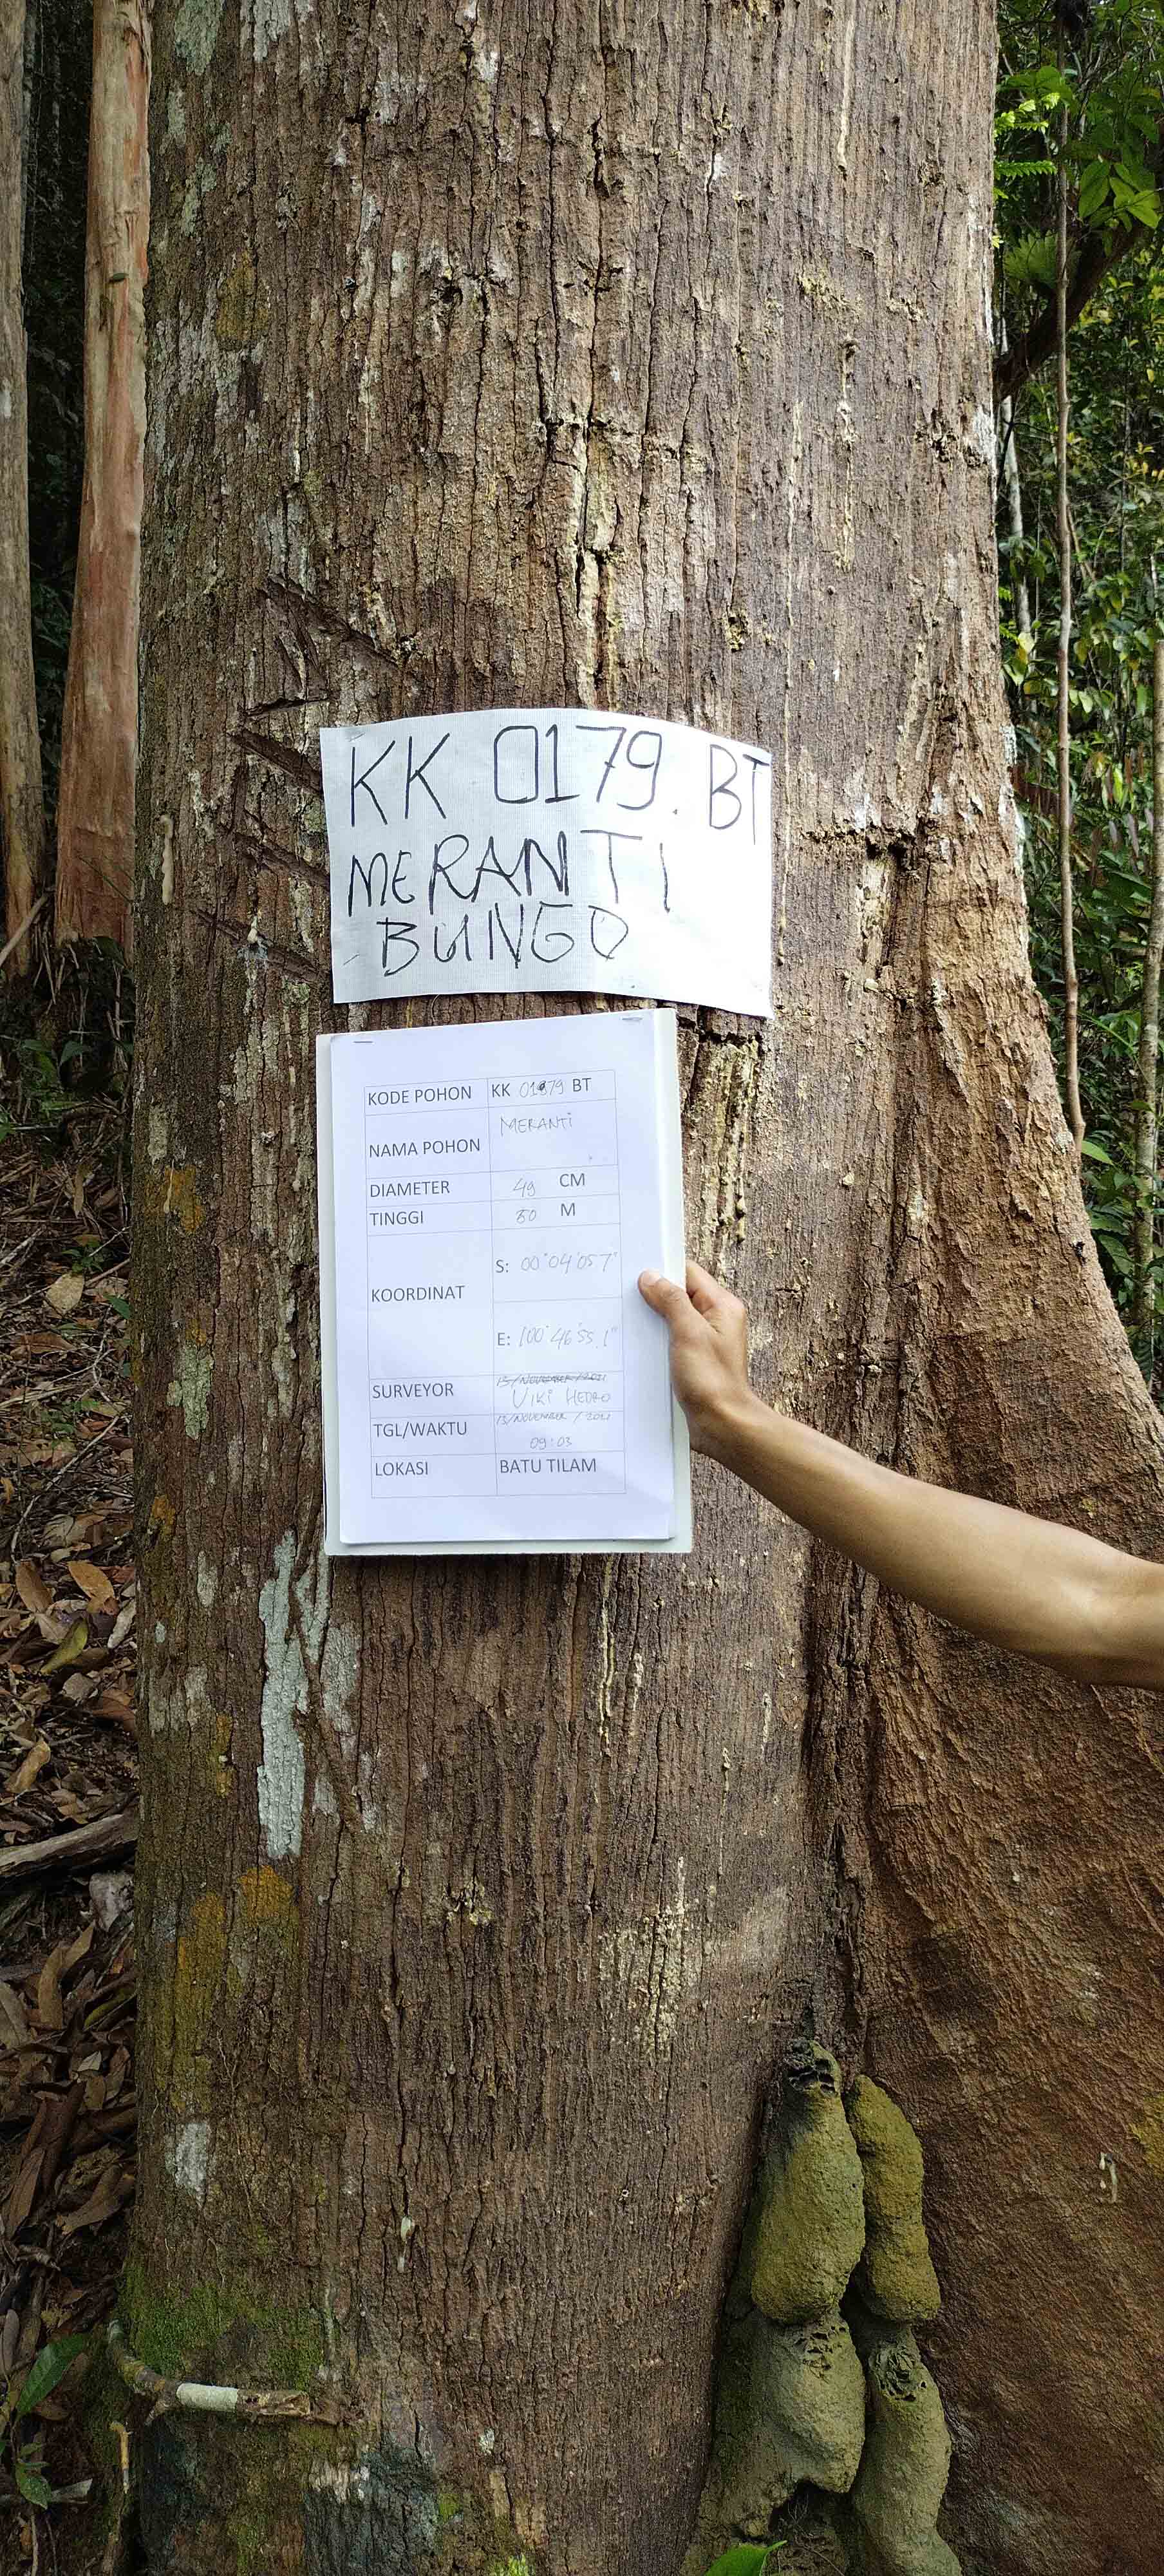 KK 0179. BT
MERANTI
BUNGO
KODE POHON KK 0179 BT
NAMA POHON MERANTi
DIAMETER 49 CM
TINGGI 50 M
KOORDINAT
S: 00°04'05.7"
E: 100°46'55.1"
SURVEYOR 13/NOVEMBER/2021
ViKi HEDRO
TGL/WAKTU 13/NOVEMBER/2021
09:03
LOKASI BATU TILAM